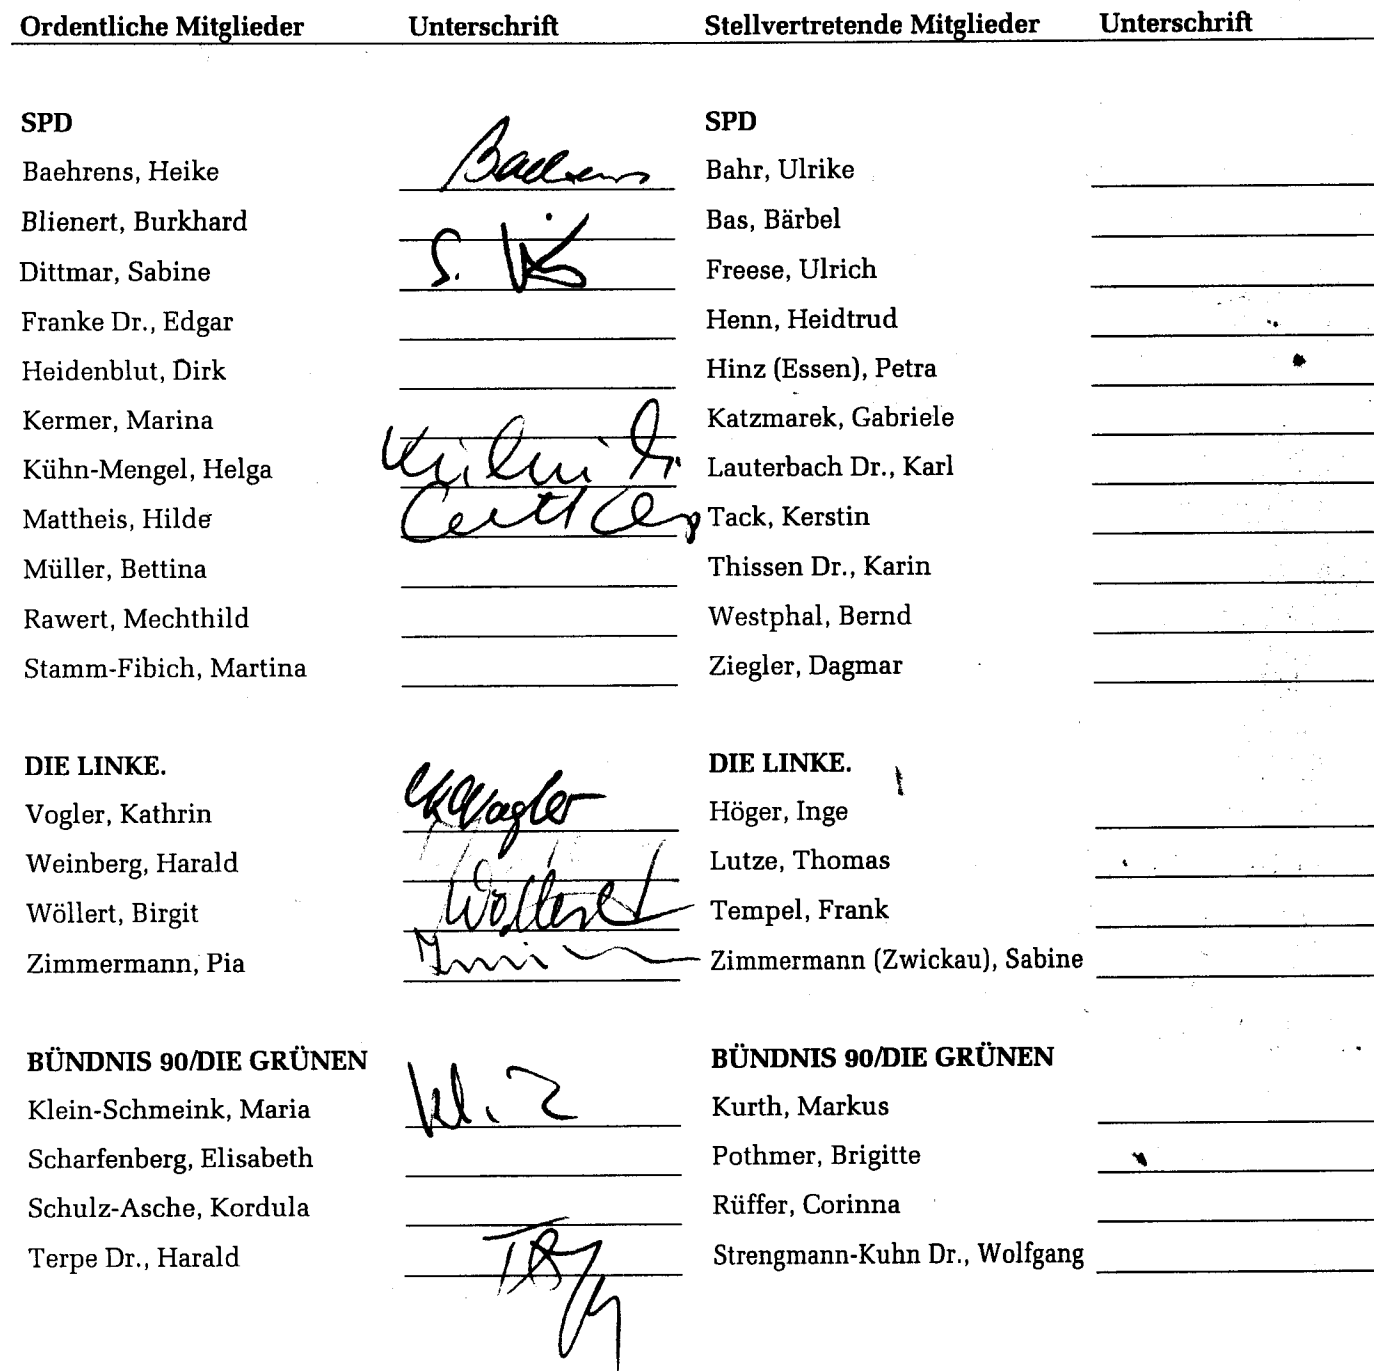 Ordentliche Mitglieder Unterschrift Stellvertretende Mitglieder Unterschrift
SPD SPD
Baehrens, Heike Baehrens Bahr, Ulrike
Blienert, Burkhard Bas, Bärbel
Dittmar, Sabine S. Freese, Ulrich
Franke Dr., Edgar Henn, Heidtrud
Heidenblut, Dirk Hinz (Essen), Petra
Kermer, Marina Katzmarek, Gabriele
Kühn-Mengel, Helga Lauterbach Dr., Karl
Mattheis, Hilde Tack, Kerstin
Müller, Bettina Thissen Dr., Karin
Rawert, Mechthild Westphal, Bernd
Stamm-Fibich, Martina Ziegler, Dagmar
DIE LINKE. DIE LINKE.
Vogler, Kathrin Vogler Höger, Inge
Weinberg, Harald Lutze, Thomas
Wöllert, Birgit Wöllert Tempel, Frank
Zimmermann, Pia Zimmermann (Zwickau), Sabine
BÜNDNIS 90/DIE GRÜNEN BÜNDNIS 90/DIE GRÜNEN
Klein-Schmeink, Maria Kurth, Markus
Scharfenberg, Elisabeth Pothmer, Brigitte
Schulz-Asche, Kordula Rüffer, Corinna
Terpe Dr., Harald Strengmann-Kuhn Dr., Wolfgang